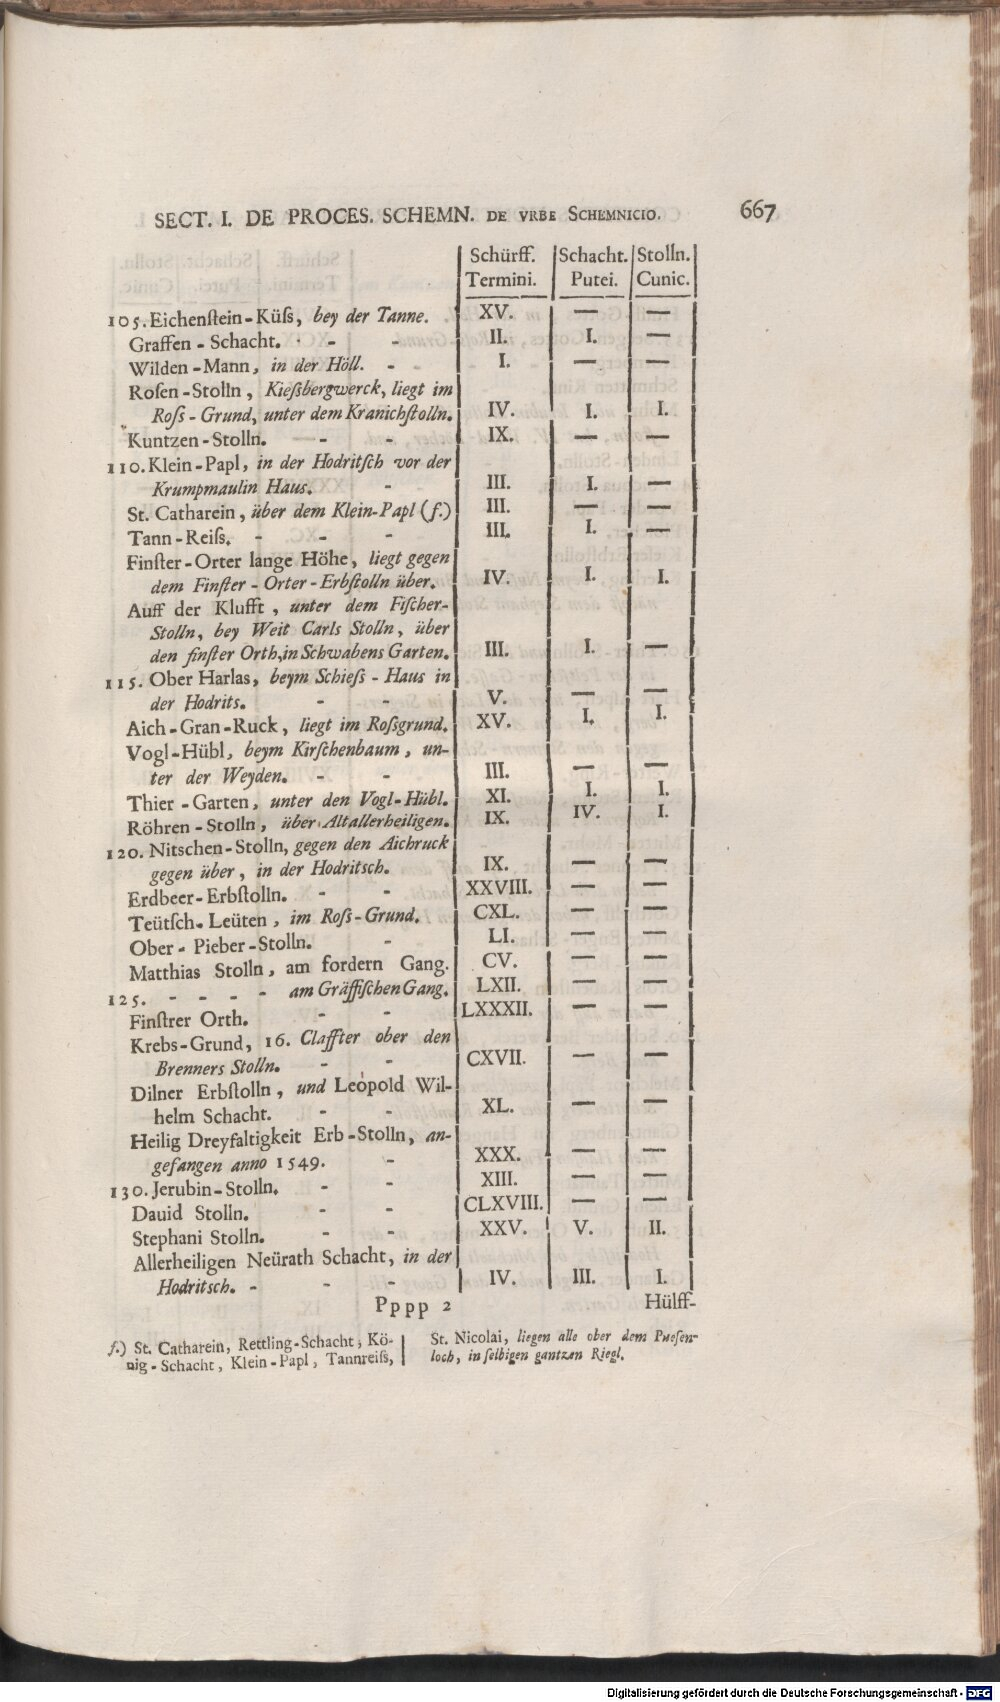 SECT. I. DE PROCES. SCHEMN. DE VRBE SCHEMNICIO. 667
Schürff. Schacht. Stolln.
Termini. Putei. Cunic.
105. Eichenſtein-Küſs, bey der Tanne. XV. — —
Graffen - Schacht. - - - II. I. —
Wilden-Mann, in der Höll. - - I. — —
Roſen-Stolln, Kieſsbergwerck, liegt im
Roſs - Grund, unter dem Kranichſtolln. IV. I. I.
Kuntzen-Stolln. - - IX. — —
110. Klein-Papl, in der Hodritſch vor der
Krumpmaulin Haus. - III. I. —
St. Catharein, über dem Klein-Papl (f.) III. — —
Tann-Reiſs. - - - III. I. —
Finſter-Orter lange Höhe, liegt gegen
dem Finſter - Orter - Erbſtolln über. IV. I. I.
Auff der Klufft, unter dem Fiſcher-
Stolln, bey Weit Carls Stolln, über
den finſter Orth, in Schwabens Garten. III. I. —
115. Ober Harlas, beym Schieſs - Haus in
der Hodrits. - - V. — —
Aich-Gran-Ruck, liegt im Roſsgrund. XV. I. I.
Vogl-Hübl, beym Kirſchenbaum, un-
ter der Weyden. - - III. — —
Thier - Garten, unter den Vogl-Hübl. XI. I. I.
Röhren - Stolln, über Altallerheiligen. IX. IV. I.
120. Nitschen-Stolln, gegen den Aichruck
gegen über, in der Hodritsch. IX. — —
Erdbeer-Erbſtolln. - - XXVIII. — —
Teütſch-Leüten, im Roſs-Grund. CXL. — —
Ober - Pieber-Stolln. - LI. — —
Matthias Stolln, am fordern Gang. CV. — —
125. - - - - am Gräffiſchen Gang. LXII. — —
Finſtrer Orth. - - LXXXII. — —
Krebs-Grund, 16. Claffter ober den
Brenners Stolln. - - CXVII. — —
Dilner Erbſtolln, und Leopold Wil-
helm Schacht. - - XL. — —
Heilig Dreyfaltigkeit Erb-Stolln, an-
gefangen anno 1549. - XXX. — —
130. Jerubin-Stolln. - - XIII. — —
Dauid Stolln. - - CLXVIII. — —
Stephani Stolln. - - XXV. V. II.
Allerheiligen Neürath Schacht, in der
Hodritsch. - - - IV. III. I.
Pppp 2 Hülff-
f.) St. Catharein, Rettling-Schacht, Kö-
nig-Schacht, Klein-Papl, Tannreiſs,
St. Nicolai, liegen alle ober dem Pueſen-
loch, in ſelbigen gantzen Riegl.
Digitalisierung gefördert durch die Deutsche Forschungsgemeinschaft - DFG